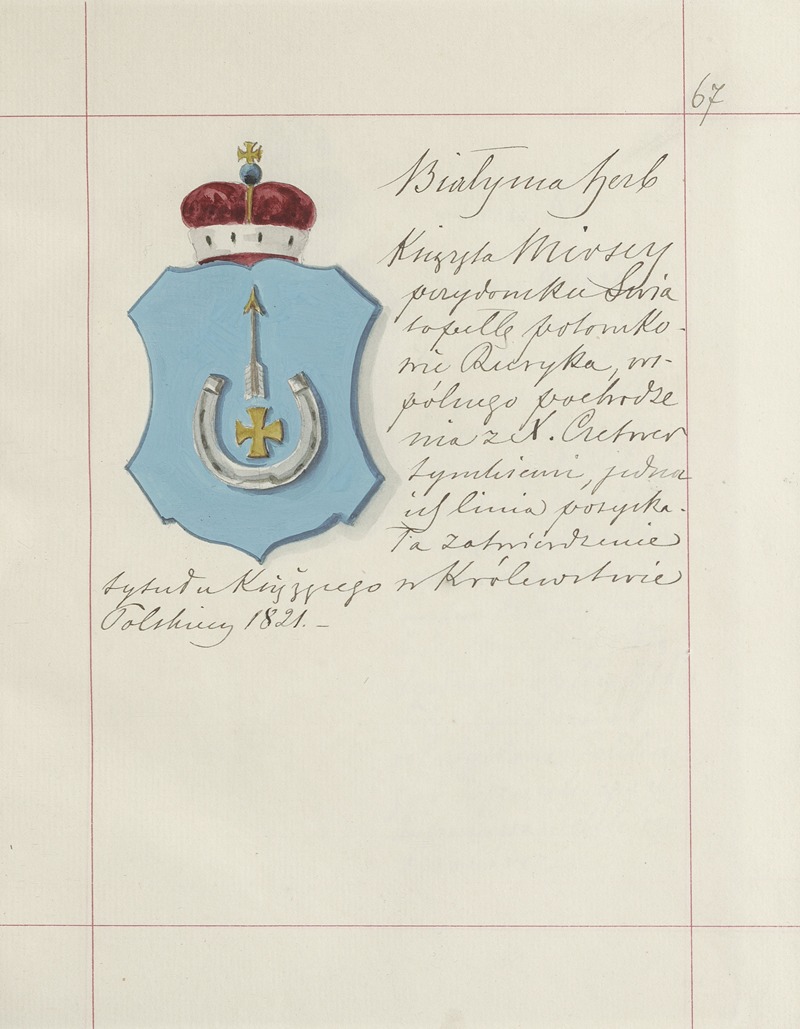 67
Białynia herb
Książęta Mirscy
przydomku Świa
topełk potomko-
wie Ruryka, ws-
pólnego pochodze
nia z X. Czetwer
tyńskiemi, jedna
ich linia pozyska-
ła zatwierdzenie
tytułu Książęcego w Królewstwie
Polskiem 1821. –